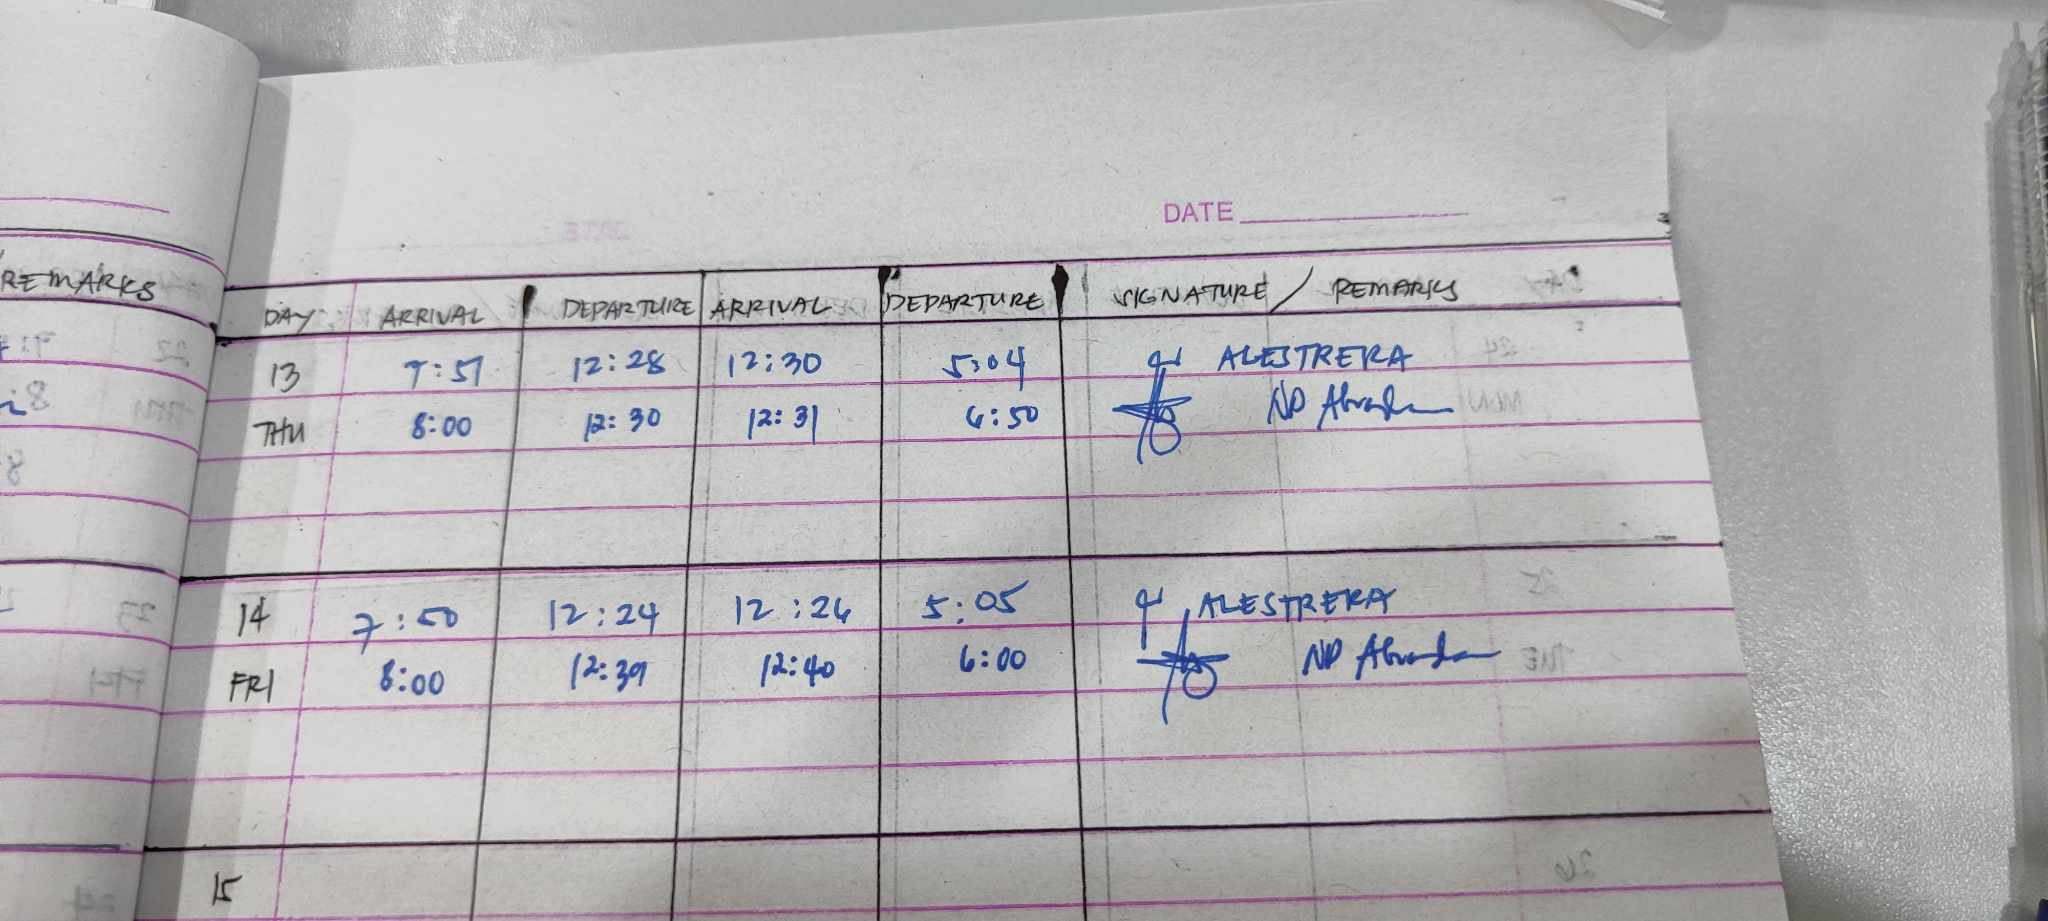 REMARKS
DATE
DAY ARRIVAL DEPARTURE ARRIVAL DEPARTURE SIGNATURE / REMARKS
13 7:51 12:28 12:30 5:04 ALESTRERA
THU 8:00 12:30 12:31 6:50 ND
14 7:50 12:24 12:26 5:05 ALESTRERA
FRI 8:00 12:39 12:40 6:00 ND
15